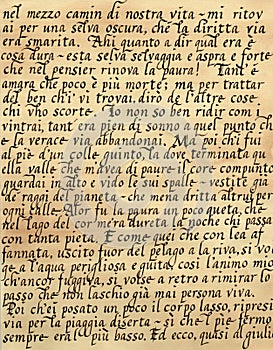 nel mezzo camin di nostra vita - mi ritov
ai per una selva oscura, che la diritta via
era smarita. Ahi quanto a dir qual era è
cosa dura - esta selva selvaggia e aspra e forte
che nel pensier rinova la paura! Tant'è
amara che poco è più morte; ma per trattar
del ben ch'i' vi trovai, dirò de l'altre cose
chi vho scorte. Io non so ben ridir com i
vintrai, tant era pien di sonno a quel punto ch
e la verace via abbandonai. Ma poi ch'i fui
al piè d'un colle quinto, là dove terminata qu
ella valle che m'avea di paure il core compunto
guardai in alto e vido le sui spalle - vestite già
de' raggi del pianeta - che mena dritta altrui per
ogni calle. Alor fu la paura un poco queta, che
nel lago del cor m'era dureta la noche chi passa
con tanta pieta. E come quei che con lea af
fannata, uscito fuor del pelago a la riva, si vo
ge a l'aqua perigliosa e guita, così l'animo mio
ch'ancor fuggiva, si volse a retro a rimirar lo
passo che non laschio già mai persona viva.
Poi ch'ei posato un poco il corpo lasso, ripresi
via per la piaggia diserta - sì che 'l piè fermo
sempre era 'l più basso. Ed ecco, quasi al giuli